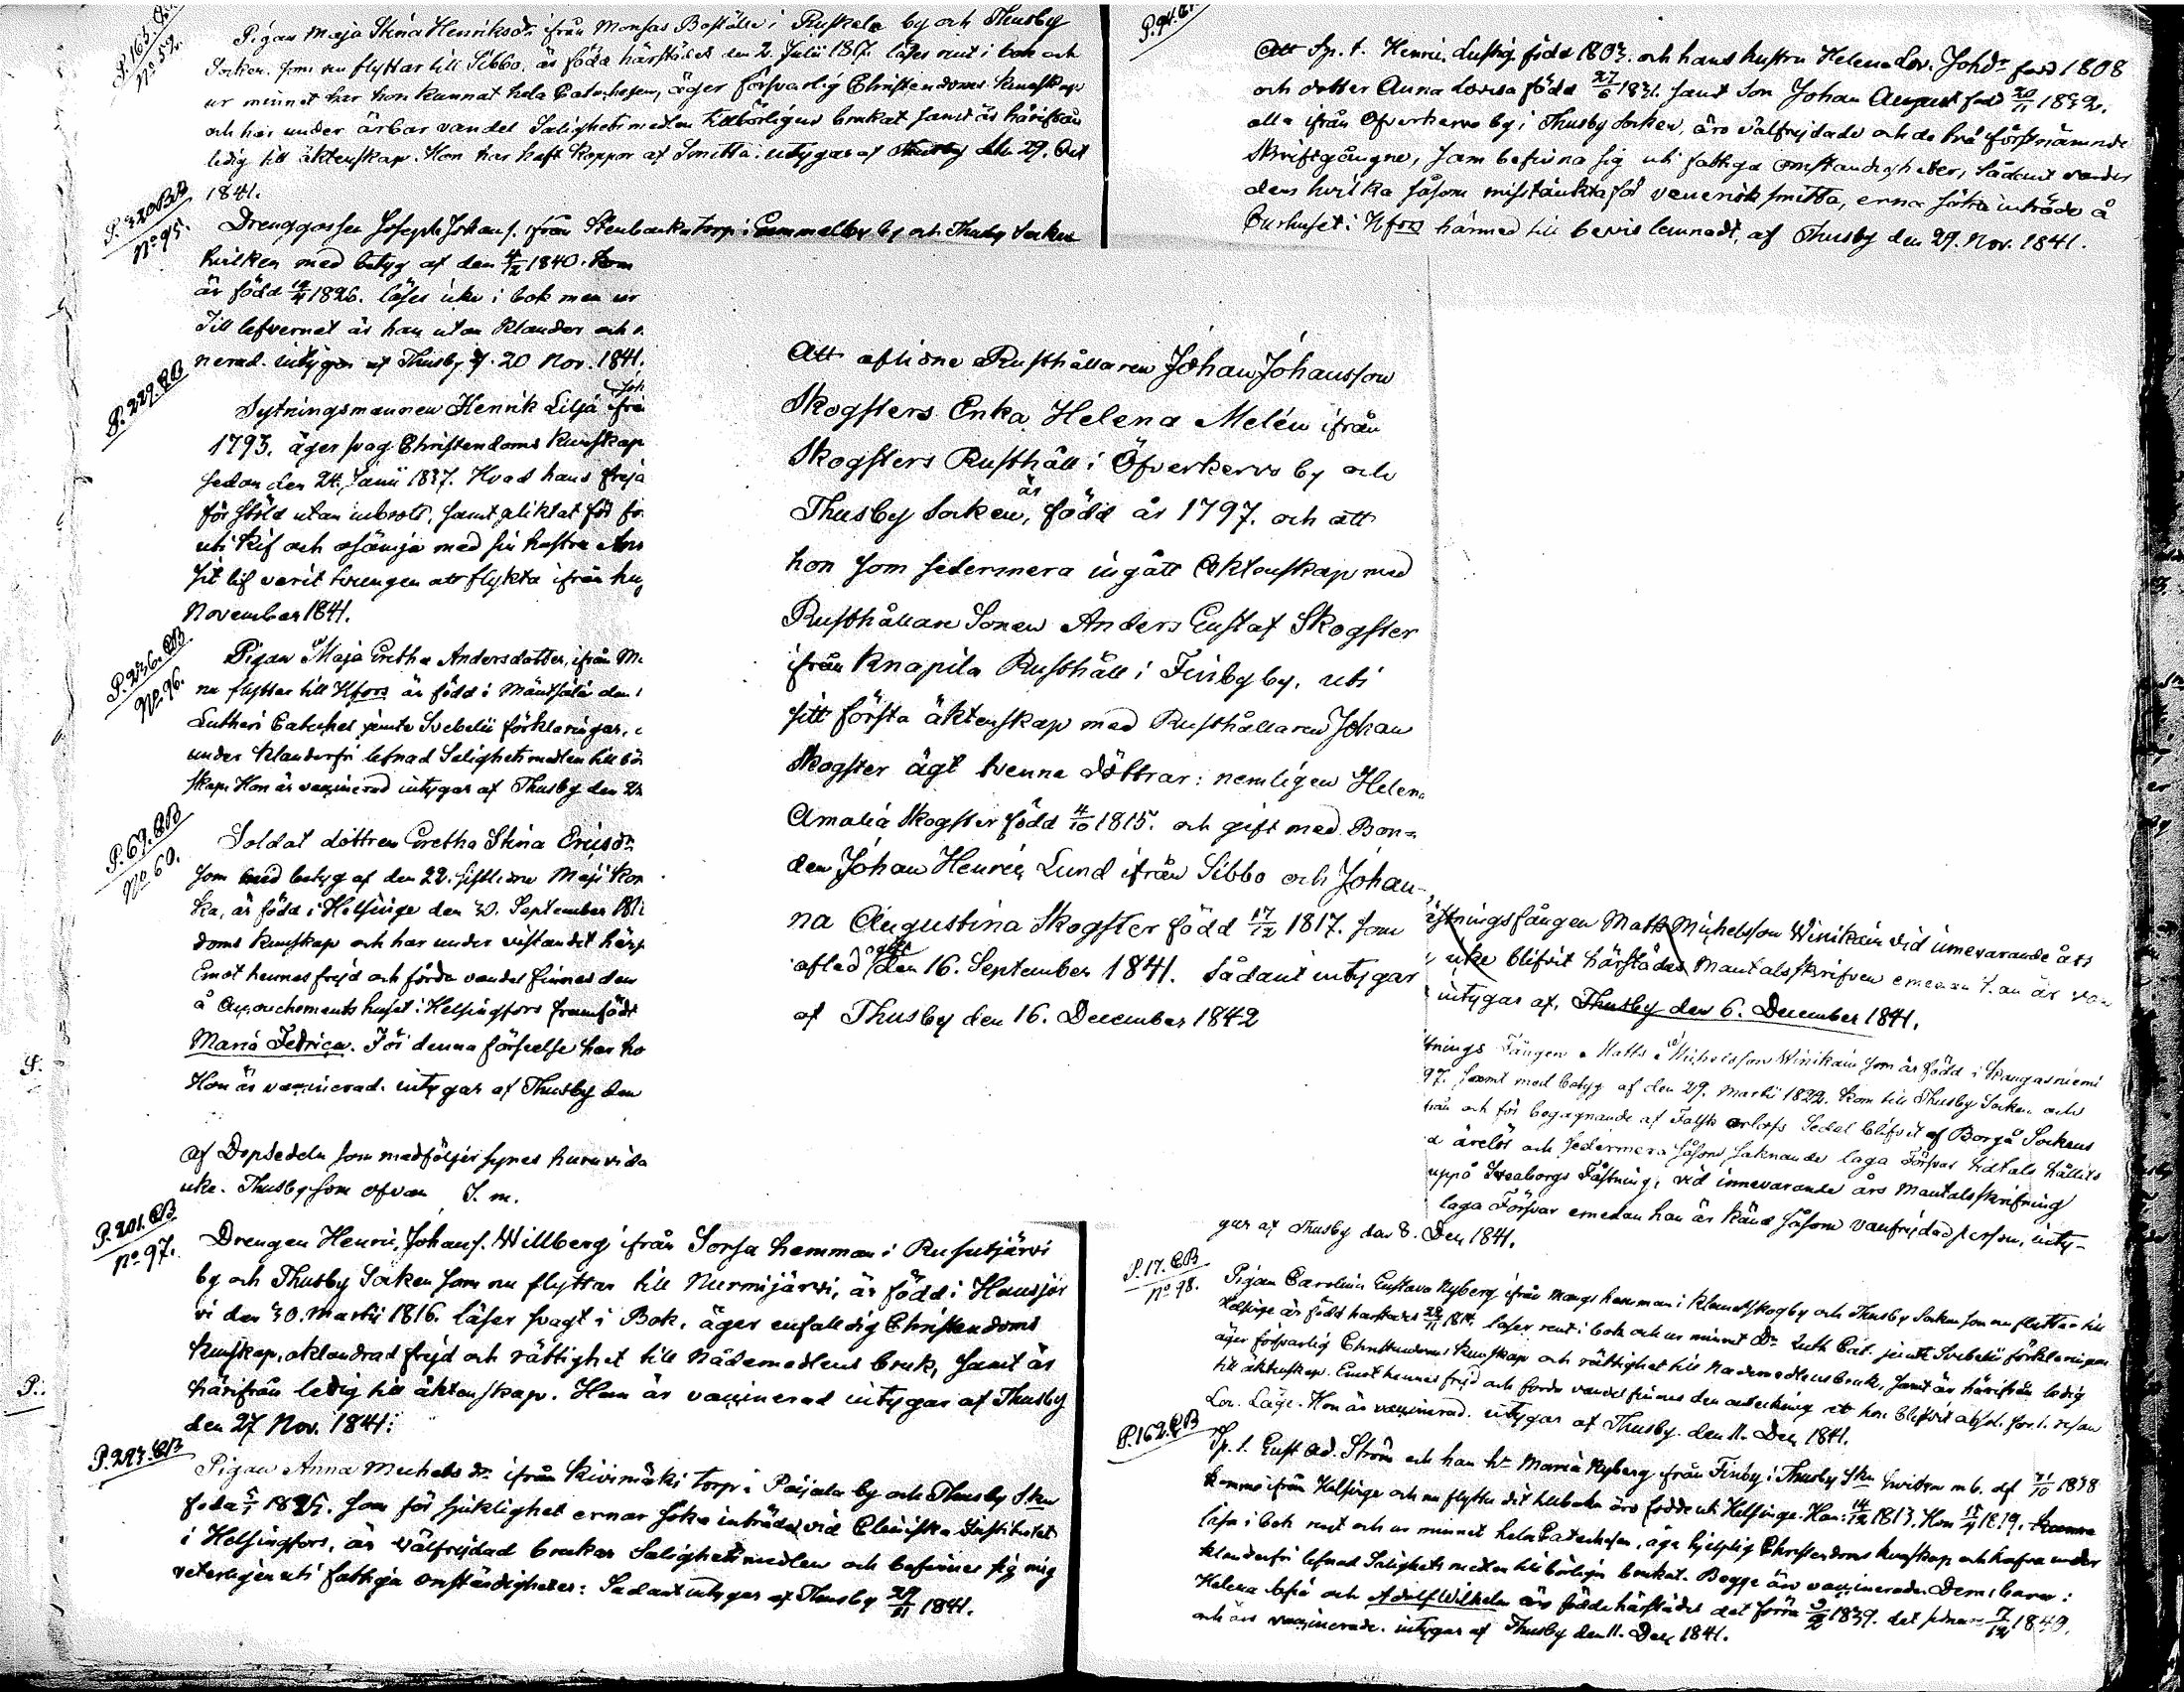 P. 163. CB
No 59.
Pigan Maja Stina Henriksdr ifrån Monsas Boställe i Ruskela by och Thusby
Socken som nu flyttar till Sibbo, är född härstädes den 2. Julii 1817. läser rent i bok och
ur minnet har hon kunnat hela Catechesen, äger försvarlig Christendoms kunskap
och har under ärbar vandel Salighetsmedlen tillbörligen brukat samt är härifrån
ledig till äktenskap. Hon har haft koppor af Smitta. intygar af Thusby den 29. Oct
1841.
P. 320 CB
No 95.
Drenggossen Joseph Johans s. ifrån Stenbacka torp i Gammelby by och Thusby Socken
hvilken med betyg af den 4/12 1840. kom
är född 19/4 1826. läser icke i bok men ur
Till lefvernet är han utan klander och
nerad. intygar af Thusby d. 20 Nov. 1841.
P. 229. CB
Joh
Sytningsmannen Henrik Lilja ifrå
1793. äger svag Christendoms kunskap
sedan den 24. Junii 1837. Hvad hans frejd
för stöld utan inbrott, samt pliktat för
uti kif och osämja med sin hustru
sit lif varit tvungen att flykta ifrån
November 1841.
P. 236. CB
No 96.
Pigan Maja Gretha Andersdotter, ifrån
nu flyttar till Hfors är född i Mäntsälä den
Lutheri Catechet jemte Svebelii förklaringar,
under klanderfri lefnad Salighetsmedlen till bör
skap. Hon är vaccinerad intygar af Thusby den
P. 69. CB
No 60.
Soldat dottren Gretha Stina Ericsdr
som med betyg af den 22. sistlidne Maji kom
ka, är född i Helsinge den 30. September
doms kunskap och har under vistandet härs
Emot hennes frejd och förda vandel finnes den
å Accouchements huset i Helsingfors framfödt
Maria Fedrica. För denna förseelse har ho
Hon är vaccinerad. intygar af Thusby den
Af Dopsedeln som medföljer synes huruvida
icke. Thusby som ofvan S. m.
P. 201. CB
No 97.
Drengen Henric Johans s. Willberg ifrån Sorsa hemman i Rusutjärvi
by och Thusby Socken som nu flyttar till Nurmijärvi, är född i Hausjär
vi den 30. Martii 1816. läser svagt i Bok, äger enfaldig Christendoms
kunskap, oklandrad frejd och rättighet till Nådemedlens bruk, samt är
härifrån ledig till äktenskap. Han är vaccinerad intygar af Thusby
den 27 Nov. 1841.
P. 293. CB
Pigan Anna Michelsdr ifrån Kivimäki torp i Paijala by och Thusby Skn
föda 1825. som för sjuklighet ernar söka inträde vid Cliniska Institutet
i Helsingfors, är välfrejdad brukar Salighetsmedlen och befinner sig mig
veterligen uti fattiga omständigheter: Sådant intygar af Thusby 29/11 1841.
Att aflidne Rusthållaren Johan Johansson
Skogsters Enka Helena Melén ifrån
Skogsters Rusthåll i Öfverkervo by och
Thusby Socken, är född år 1797. och att
hon som sedermera ingått Ecktenskap med
Rusthållare Sonen Anders Gustaf Skogster
ifrån Knapila Rusthåll i Finby by, uti
sitt första äktenskap med Rusthållaren Johan
Skogster ägt tvenne döttrar: nemligen Helena
Amalia Skogster född 4/10 1815. och gift med Bon=
den Johan Henric Lund ifrån Sibbo och Johan-
na Augustina Skogster född 17/12 1817. som
afled ogift den 16. September 1841. Sådant intygar
af Thusby den 16. December 1842
P. 94. CB
Att Sp. t. Henric Lustig född 1803. och hans hustru Helena Lov. Johdr född 1808
och dotter Anna Lovisa född 27/6 1831. samt Son Johan August född 20/11 1839.
alla ifrån Öfverkervo by i Thusby Socken, äro välfrejdade och de två förstnämnde
Skriftgångne, som befinna sig uti fattiga omständigheter, Sådant varder
dem hvilka såsom misstänkta för venerisk smitta, erna söka inträde å
Curhuset i Hfors härmed till bevis lemnadt, af Thusby den 29. Nov. 1841.
ästningsfången Matts Michelsson Winikain vid innevarande års
icke blifvit härstädes Mantalsskrifven emedan han är van
intygar af. Thusby den 6. December 1841.
tnings Fången Matts Michelsson Winikain som är född i Kangasniemi
97. samt med betyg af den 29. Martii 1822. kom till Thusby Socken och
från och för begagnande af Falsk orlofs Sedel blifvit af Borgå Sockens
ärelös och sedermera såsom saknande laga Försvar tidtals hållits
uppå Sveaborgs Fästning, vid innevarande års mantalsskrifning
laga Försvar emedan han är känd såsom vanfrejdad person, inty-
gar af Thusby den 8. Dec 1841.
P. 17. CB
No 98.
Pigan Carolina Gustava Nyberg ifrån Mangs hemman i Klemetskog by och Thusby Socken som nu flyttar till
Helsinge är född härstädes 1817. läser rent i bok och ur minnet Dr Luth Cat. jemte Svebelii förklaringar
äger försvarlig Christendoms kunskap och rättighet till Nådemedlens bruk, samt är härifrån ledig
till äktenskap. Emot hennes frejd och förda vandel finnes den anteckning att hon blifvit absol. för 1. resan
Lön. Läge. Hon är vaccinerad. intygar af Thusby den 11. Dec 1841.
P. 162. CB
Sp. t. Gust Ad. Ström och han hu Maria Nyberg ifrån Finby i Thusby Skn hvilka m. b. af 31/10 1838
komma ifrån Helsinge och nu flytta dit tillbaka äro födde uti Helsinge. Han: 14/12 1813, Hon 15/4 1819.
läsa i bok rent och ur minnet hela Catechesen, äga hjelplig Christendoms kunskap och hafva under
klanderfri lefnad Salighetsmedlen tillbörligen brukat. Begge äro vaccinerade. Deras barn:
Helena Sofia och Adolf Wilhelm äro födde härstädes det förra 1839. det sednare 7/12 1840.
och äro vaccinerade. intygar af Thusby den 11. Dec 1841.